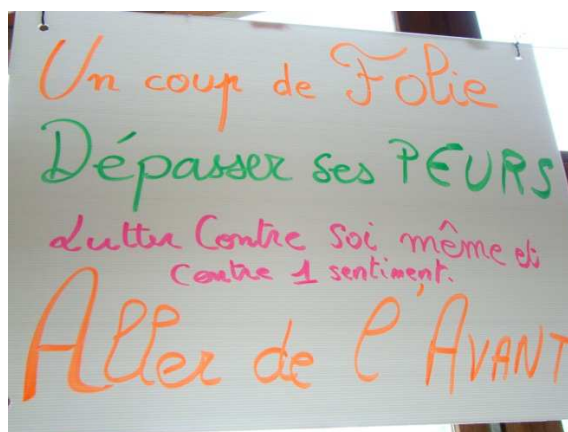 Un coup de Folie
Dépasser ses PEURS
Lutter Contre soi même et
Contre 1 sentiment.
Aller de l'AVANT